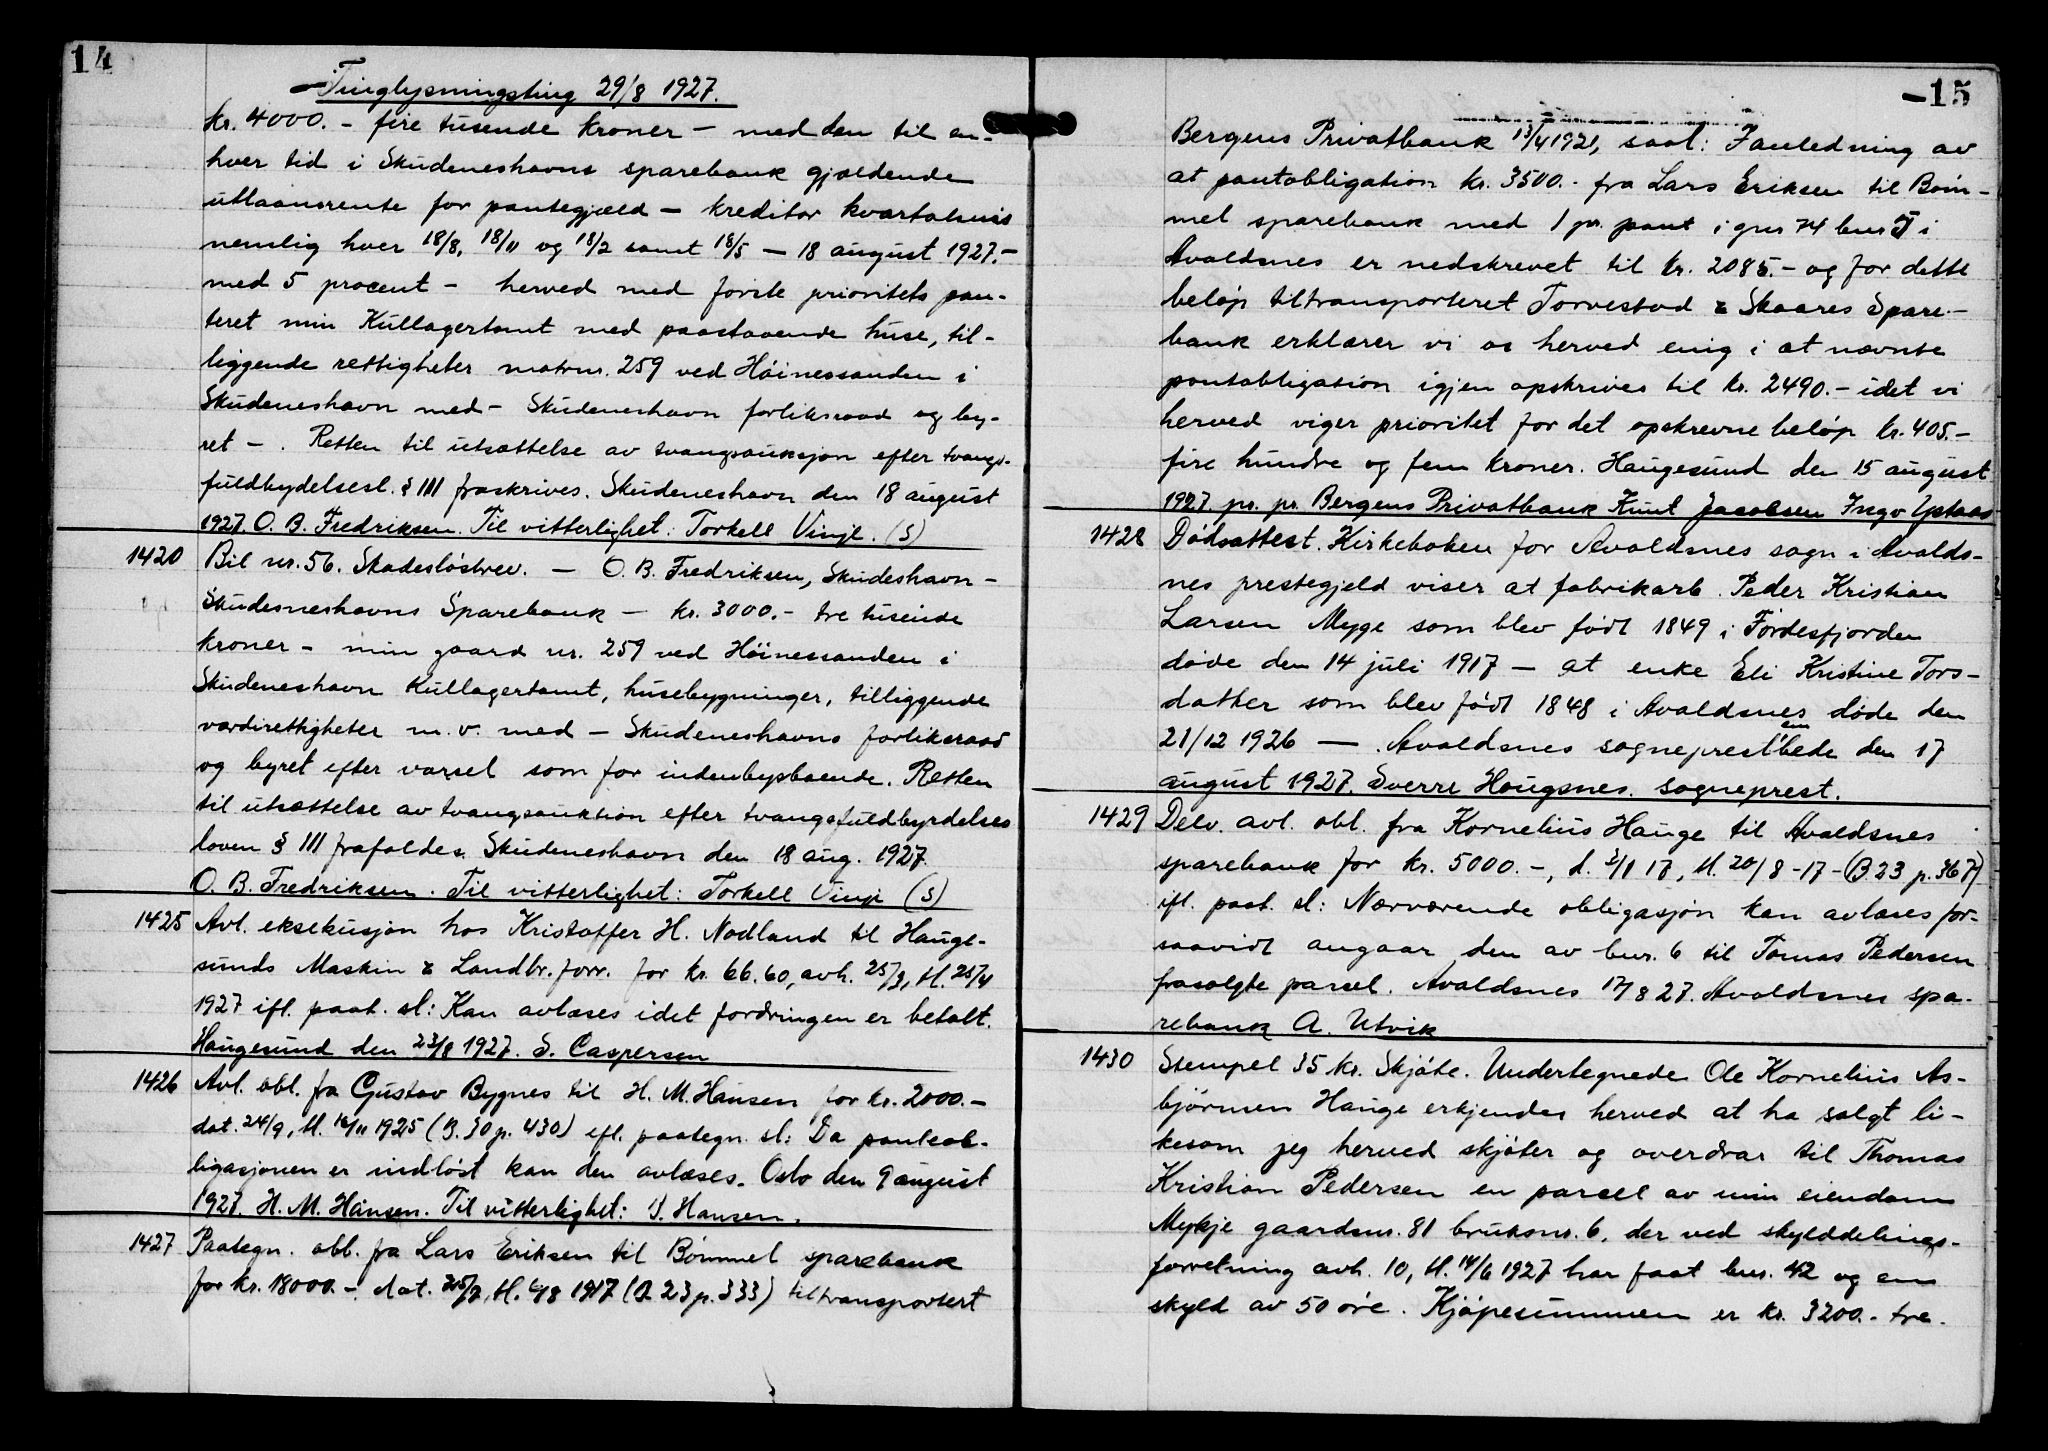 14
Tinglysningsting 29/8 1927.
kr. 4000.- fire tusende kroner - med den til en-
hver tid i Skudeneshavns sparebank gjældende
utlaansrente for pantegjæld - kreditor kvartalsvis
nemlig hver 18/8, 18/11 og 18/2 samt 18/5 - 18 august 1927.-
med 5 procent - herved med første prioritets pan-
teret min Kullagertomt med paastaaende huse, til-
liggende rettigheter matrnr. 259 ved Höinessanden i
Skudeneshavn med - Skudeneshavn forliksraad og by-
ret - . Retten til utsættelse av tvangsauksjon efter tvangs-
fuldbydelsesl. § 111 fraskrives. Skudeneshavn den 18 august
1927. O. B. Fredriksen. Til vitterlighet: Torkell Vinje. (S)
1420 Bil nr. 56. Skadesløsbrev. - O. B. Fredriksen, Skudeshavn -
Skudesneshavns Sparebank - kr. 3000.- tre tusende
kroner - min gaard nr. 259 ved Höinessanden i
Skudeneshavn Kullagertomt, husebygninger, tilliggende
værdirettigheter m. v. med - Skudeneshavns forliksraad
og byret efter varsel som for indenbysboende. Retten
til utsættelse av tvangsauktion efter tvangsfuldbyrdelses
loven § 111 frafaldes. Skudeneshavn den 18 aug. 1927.
O. B. Fredriksen. Til vitterlighet: Torkell Vinje (S)
1425 Avl. eksekusjon hos Kristoffer H. Nodland til Hauge-
sunds Maskin & Landbr. forr. for kr. 66.60, avh. 25/3, tl. 25/4
1927 ifl. paat. sl: Kan avlæses idet fordringen er betalt.
Haugesund den 23/8 1927. S. Caspersen
1426 Avl. obl. fra Gustav Bygnes til H. M. Hansen for kr. 2000.-
dat. 24/9, tl. 16/11 1925 (B. 30 p. 430) ifl. paategn. sl: Da panteob-
ligasjonen er indløst kan den avlæses. Oslo den 9 august
1927. H. M. Hansen. Til vitterlighet: Hansen.
1427 Paategn. obl. fra Lars Eriksen til Bømmel sparebank
for kr. 18000.- dat. 25/7, tl. 4/8 1917 (B. 23 p. 333) tiltransportert
-15
Bergens Privatbank 13/4 1921, saal: I anledning av
at pantobligation kr. 3500.- fra Lars Eriksen til Bøm-
mel sparebank med 1 pr. pant i gnr 74 bnr 5 i
Avaldsnes er nedskrevet til kr. 2085.- og for dette
beløp tiltransporteret Torvestad & Skaares Spare-
bank erklærer vi os herved enig i at nævnte
pantobligation igjen opskrives til kr. 2490.- idet vi
herved viger prioritet for det opskrevne beløp kr. 405.-
fire hundre og fem kroner. Haugesund den 15 august
1927. pr. pr. Bergens Privatbank Knut Jacobsen Ingv
1428 Dødsattest. Kirkeboken for Avaldsnes sogn i Avalds-
nes prestegjeld viser at fabrikarb. Peder Kristian
Larsen Myge som blev født 1849 i Førdesfjorden
døde den 14 juli 1917 - at enke Eli Kristine Tors-
datter som blev født 1848 i Avaldsnes døde den
21/12 1926 - . Avaldsnes sogneprestembede den 17
august 1927. Sverre Hougsnes. sogneprest.
1429 Delv. avl. obl. fra Kornelius Hauge til Avaldsnes
sparebank for kr. 5000.-, d. 3/1 17, tl. 20/8-17 - (B. 23 p. 367)
ifl. paat. sl: Nærværende obligasjon kan avlæses for-
saavidt angaar den av bnr. 6 til Tomas Pedersen
frasolgte parsel. Avaldsnes 17/8 27. Avaldsnes spa-
rebank A. Utvik
1430 Stempel 35 kr. Skjøte. Undertegnede Ole Kornelius As-
bjørnsen Hauge erkjender herved at ha solgt li-
kesom jeg herved skjøter og overdrar til Thomas
Kristian Pedersen en parsel av min eiendom
Mykje gaardsnr. 81 bruksnr. 6, der ved skylddelings-
forretning avh. 10, tl. 14/6 1927 har faat bnr. 42 og en
skyld av 50 øre. Kjøpesummen er kr. 3200.- tre-